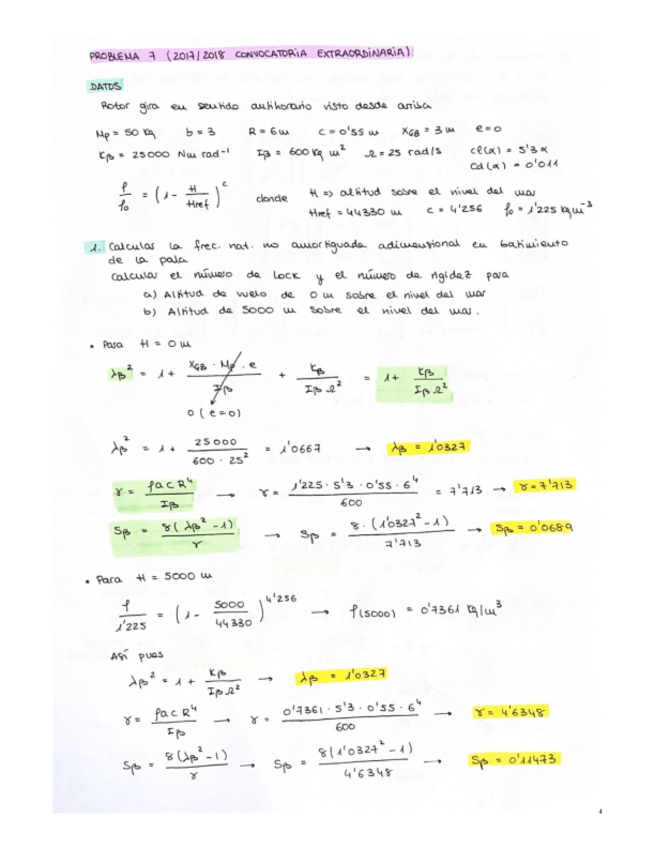 PROBLEMA 7 (2017/2018 CONVOCATORIA EXTRAORDINARIA)
DATOS
Rotor gira en sentido antihorario visto desde arriba
Mp = 50 Kg b = 3 R = 6 m c = 0'55 m XGB = 3 m e = 0
Kβ = 25000 Nm rad⁻¹ Iβ = 600 Kg m² Ω = 25 rad/s cl(α) = 5'3 α
Cd(α) = 0'011
ρ/ρ₀ = (1 - H/Href)^c donde H => altitud sobre el nivel del mar
Href = 44330 m c = 4'256 ρ₀ = 1'225 kg m⁻³
1. Calcular la frec. nat. no amortiguada adimensional en batimiento
de la pala
Calcular el número de Lock y el número de rigidez para
a) Altitud de vuelo de 0 m sobre el nivel del mar
b) Altitud de 5000 m sobre el nivel del mar.
• Para H = 0 m
λβ² = 1 + XGB · Mp · e / Iβ + Kβ / Iβ Ω² = 1 + Kβ / Iβ Ω²
0 (e=0)
λβ² = 1 + 25000 / 600 · 25² = 1'0667 → λβ = 1'0327
γ = ρacR⁴ / Iβ → γ = 1'225 · 5'3 · 0'55 · 6⁴ / 600 = 7'713 → γ = 7'713
Sβ = 8(λβ² - 1) / γ → Sβ = 8 · (1'0327² - 1) / 7'713 → Sβ = 0'0689
• Para H = 5000 m
ρ / 1'225 = (1 - 5000 / 44330)^4'256 → ρ(5000) = 0'7361 kg/m³
Así pues
λβ² = 1 + Kβ / Iβ Ω² → λβ = 1'0327
γ = ρacR⁴ / Iβ → γ = 0'7361 · 5'3 · 0'55 · 6⁴ / 600 → γ = 4'6348
Sβ = 8(λβ² - 1) / γ → Sβ = 8(1'0327² - 1) / 4'6348 → Sβ = 0'11473
1